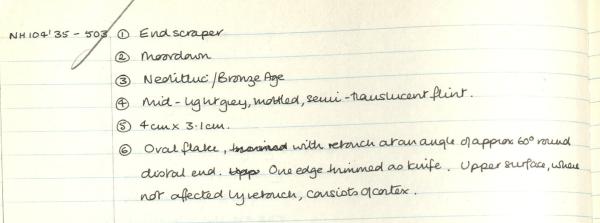 NH104'35-503 ① End scraper
② Moordown
③ Neolithic/Bronze Age
④ Mid-light grey, mottled, semi-translucent flint.
⑤ 4cm x 3.1cm.
⑥ Oval flake, with retouch at an angle of approx 60° round
distal end. One edge trimmed as knife. Upper surface, where
not affected by retouch, consists of cortex.